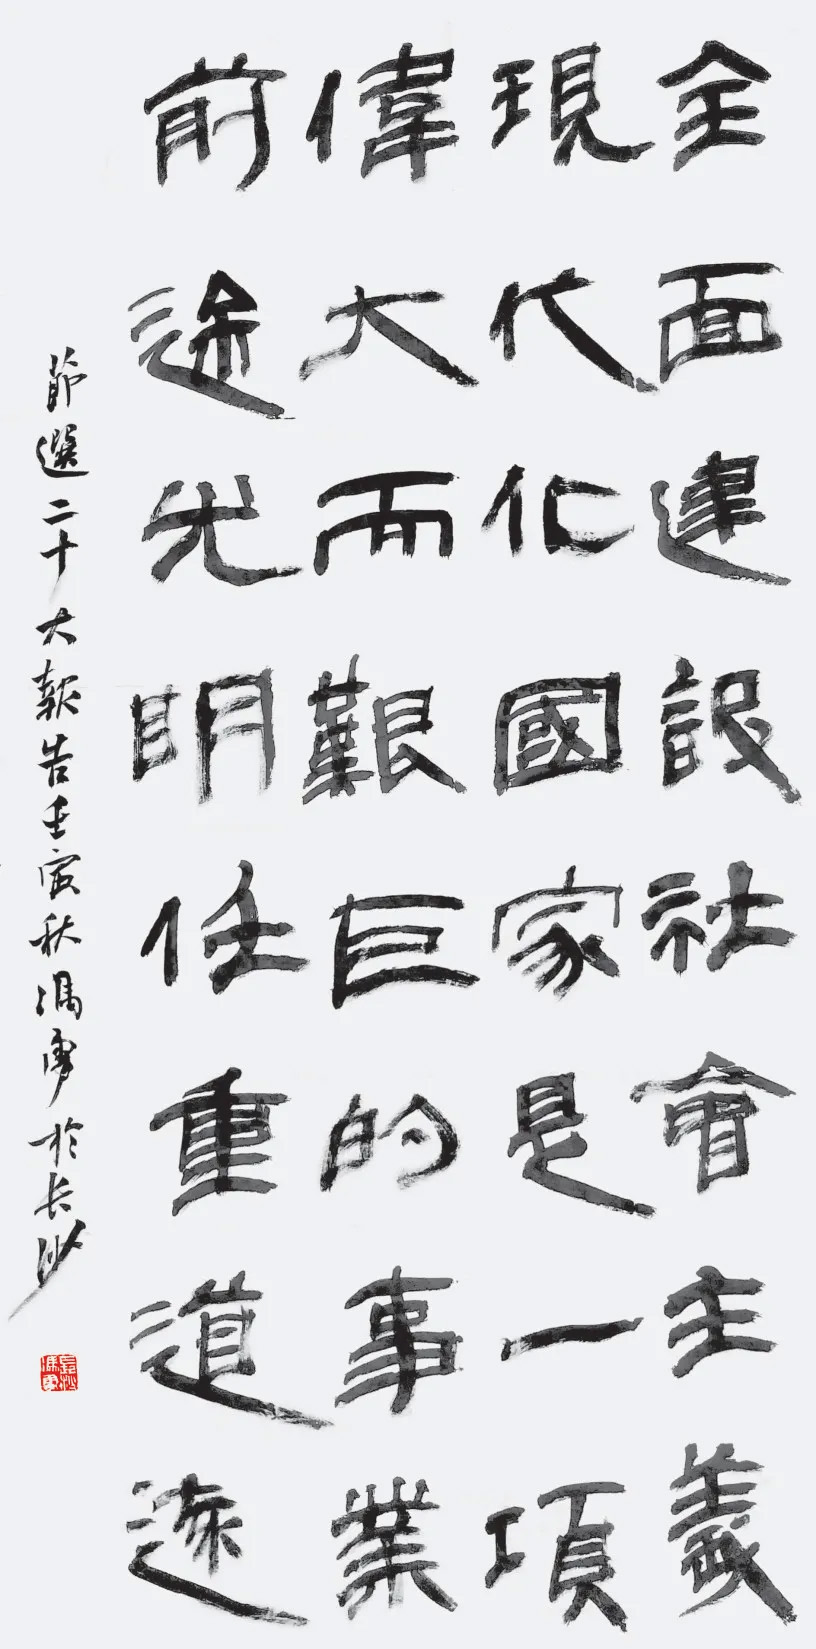 全面建設社會主義
現代化國家是一項
偉大而艱巨的事業
前途光明任重道遠
節選二十大報告壬寅秋馮勇於长沙